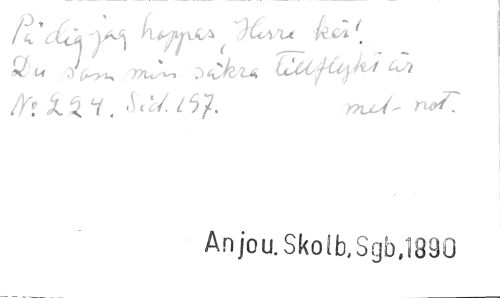 På dig jag hoppas, Herre kär!
Du som min säkra tillflykt är
No 224. Sid. 197. mel- not.
Anjou. Skolb. Sgb, 1890